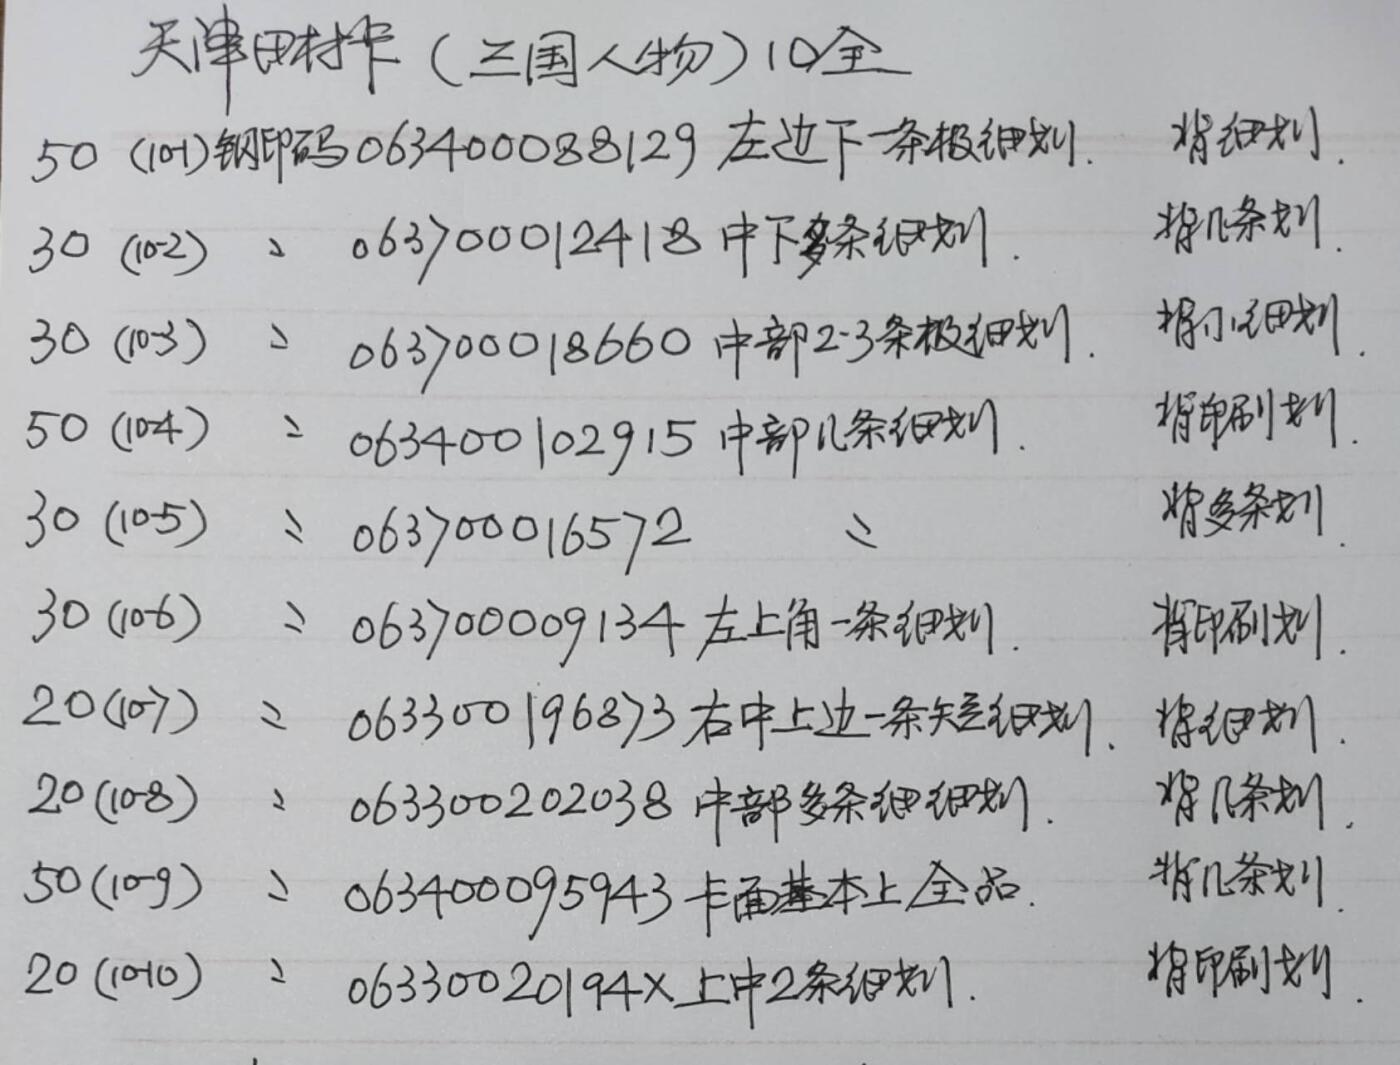 天津田村卡（三国人物）10全
50 (10-1) 钢印码 063400088129 左边下一条极细划. 背细划.
30 (10-2) 〃 063700012418 中下多条细划. 背几条划.
30 (10-3) 〃 063700018660 中部2-3条极细划. 背小细划.
50 (10-4) 〃 063400102915 中部几条细划. 背印刷划.
30 (10-5) 〃 063700016572 〃 背多条划.
30 (10-6) 〃 063700009134 左上角一条细划. 背印刷划.
20 (10-7) 〃 063300196873 右中上边一条短细划. 背细划.
20 (10-8) 〃 063300202038 中部多条细细划. 背几条划.
50 (10-9) 〃 063400095943 卡面基本上全品. 背几条划.
20 (10-10) 〃 06330020194X 上中2条细划. 背印刷划.